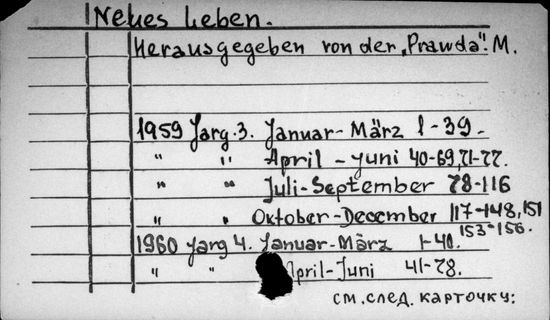 Neues Leben.
Herausgegeben von der „Prawda". M.
1959 Jarg. 3. Januar-März 1-39.
" " April-Juni 40-69, 71-77.
" " Juli-September 78-116
" " Oktober-December 117-148, 151
153-156.
1960 Jarg 4. Januar-März 1-40.
" " April-Juni 41-78.
см. след. карточку: